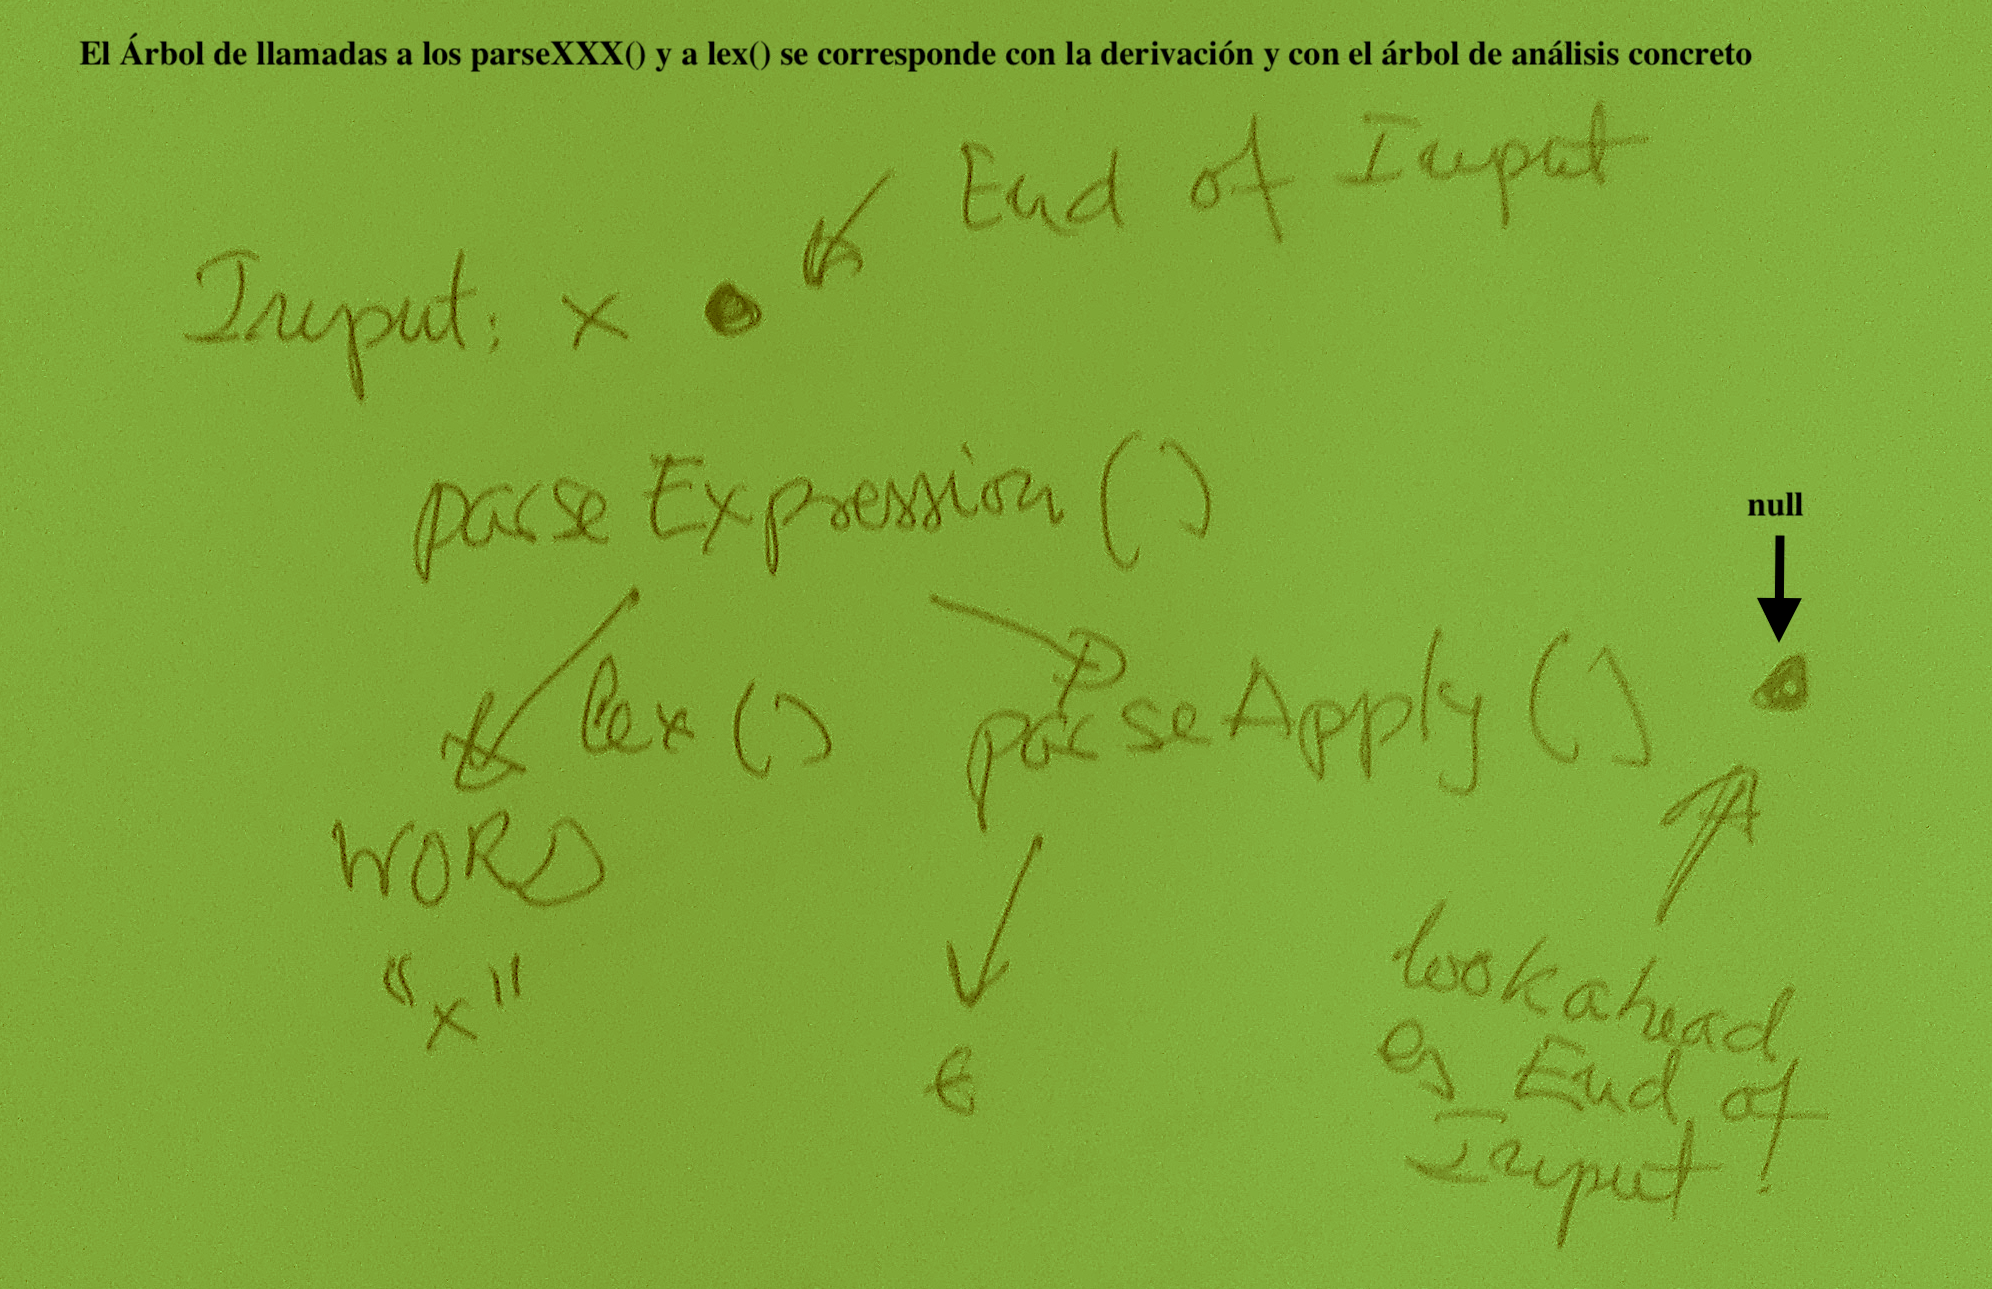 El Árbol de llamadas a los parseXXX() y a lex() se corresponde con la derivación y con el árbol de análisis concreto
End of Input
Input: x
parseExpression()
null
lex() parseApply()
WORD
"x"
ϵ
lookahead
es End of
Input!